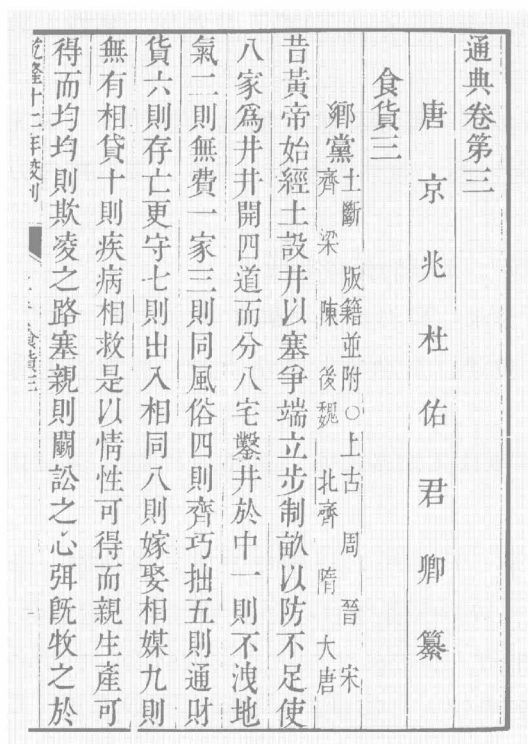 通典卷第三
唐京兆杜佑君卿纂
食貨三
鄉黨土斷 版籍並附○上古 周 晉 宋
齊 梁 陳 後魏 北齊 隋 大唐
昔黃帝始經土設井以塞爭端立步制畝以防不足使
八家為井井開四道而分八宅鑿井於中一則不洩地
氣二則無費一家三則同風俗四則齊巧拙五則通財
貨六則存亡更守七則出入相同八則嫁娶相媒九則
無有相貸十則疾病相救是以情性可得而親生產可
得而均均則欺凌之路塞親則鬭訟之心弭旣牧之於
乾隆十二年校刊
食貨三